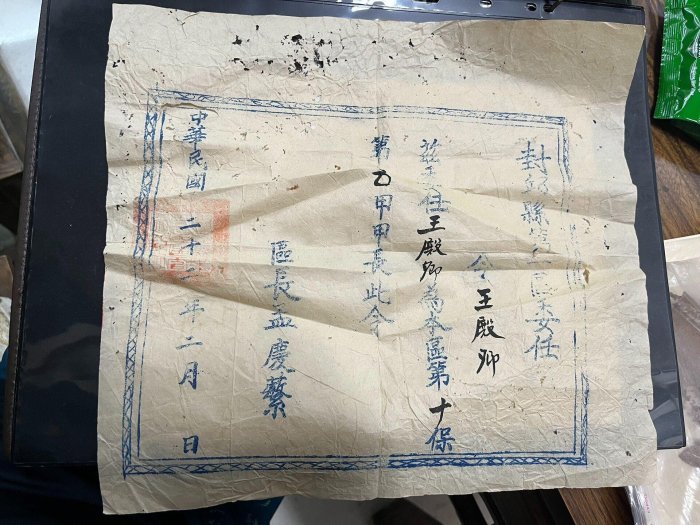 封邱縣第 區委任
令 王殿卿
茲委任王殿卿為本區第十保
第 甲甲長此令
區長孟慶藝
中華民國二十二年二月 日